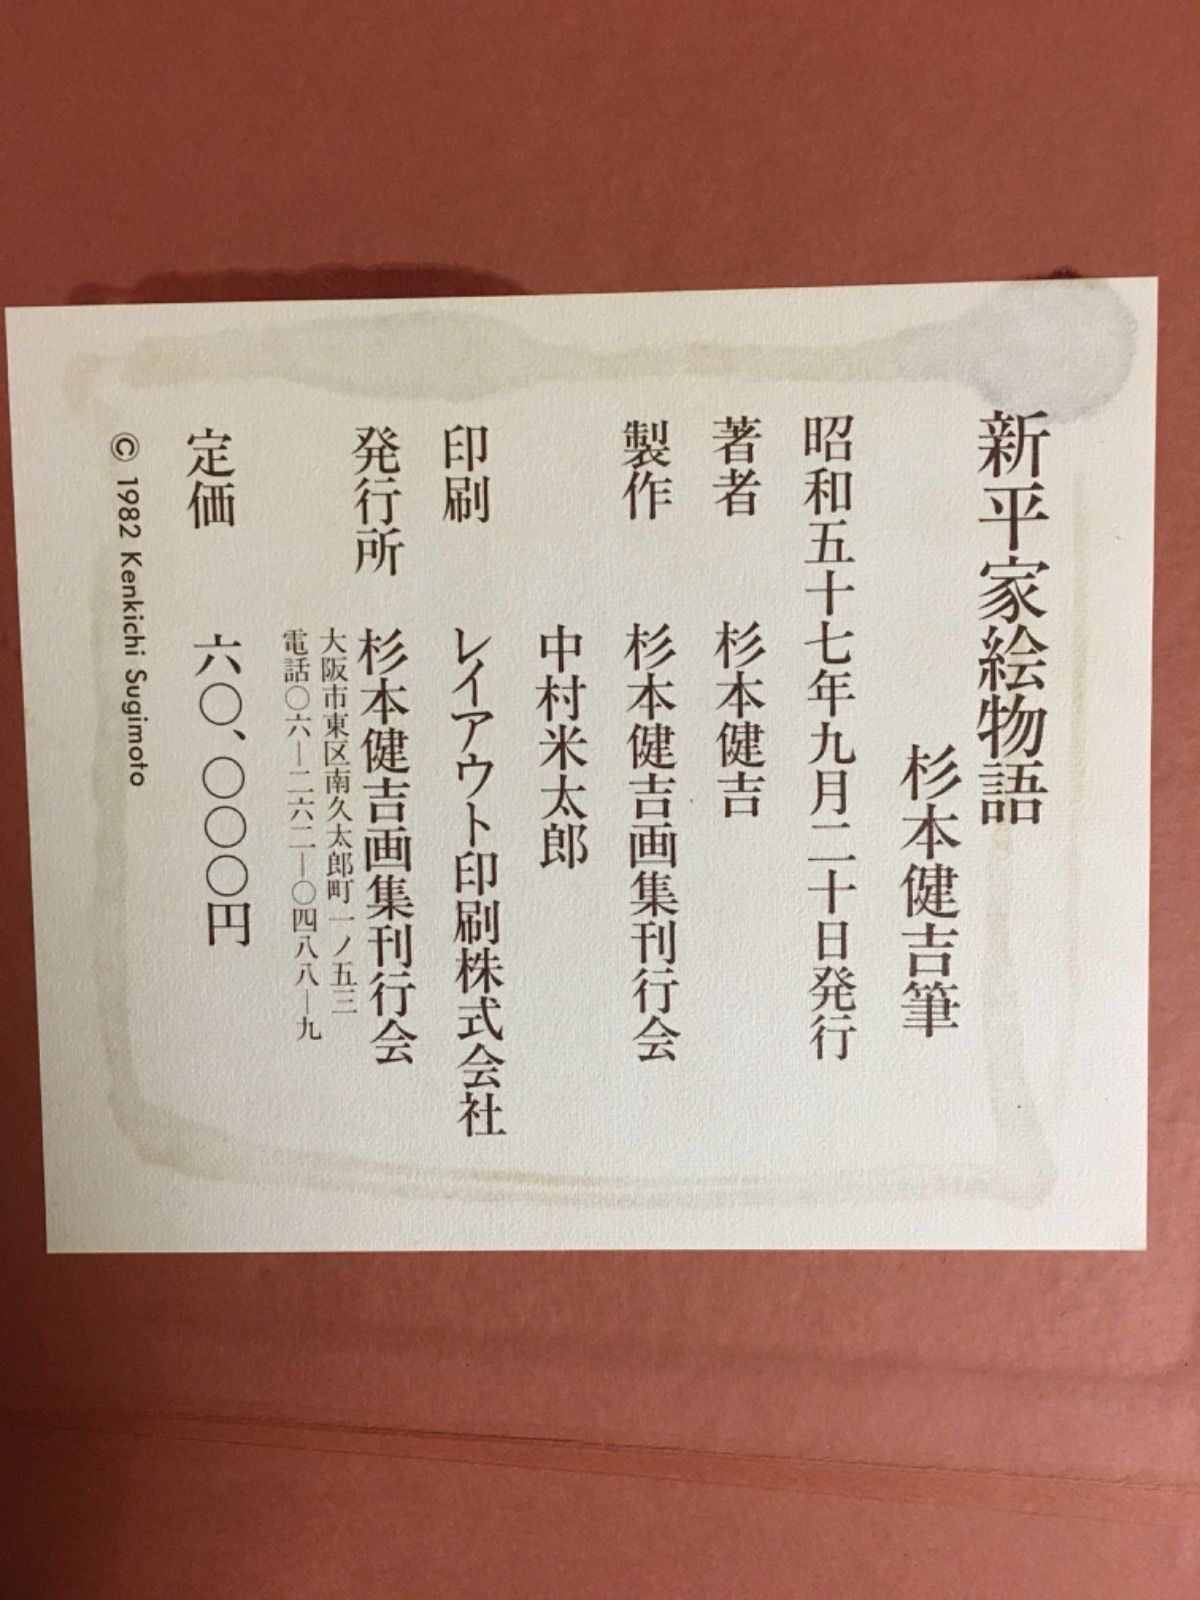 新平家絵物語
杉本健吉筆
昭和五十七年九月二十日発行
著者 杉本健吉
製作 杉本健吉画集刊行会
中村米太郎
印刷 レイアウト印刷株式会社
発行所 杉本健吉画集刊行会
大阪市東区南久太郎町一ノ五三
電話〇六―二六二―〇四八八―九
定価 六〇、〇〇〇円
© 1982 Kenkichi Sugimoto